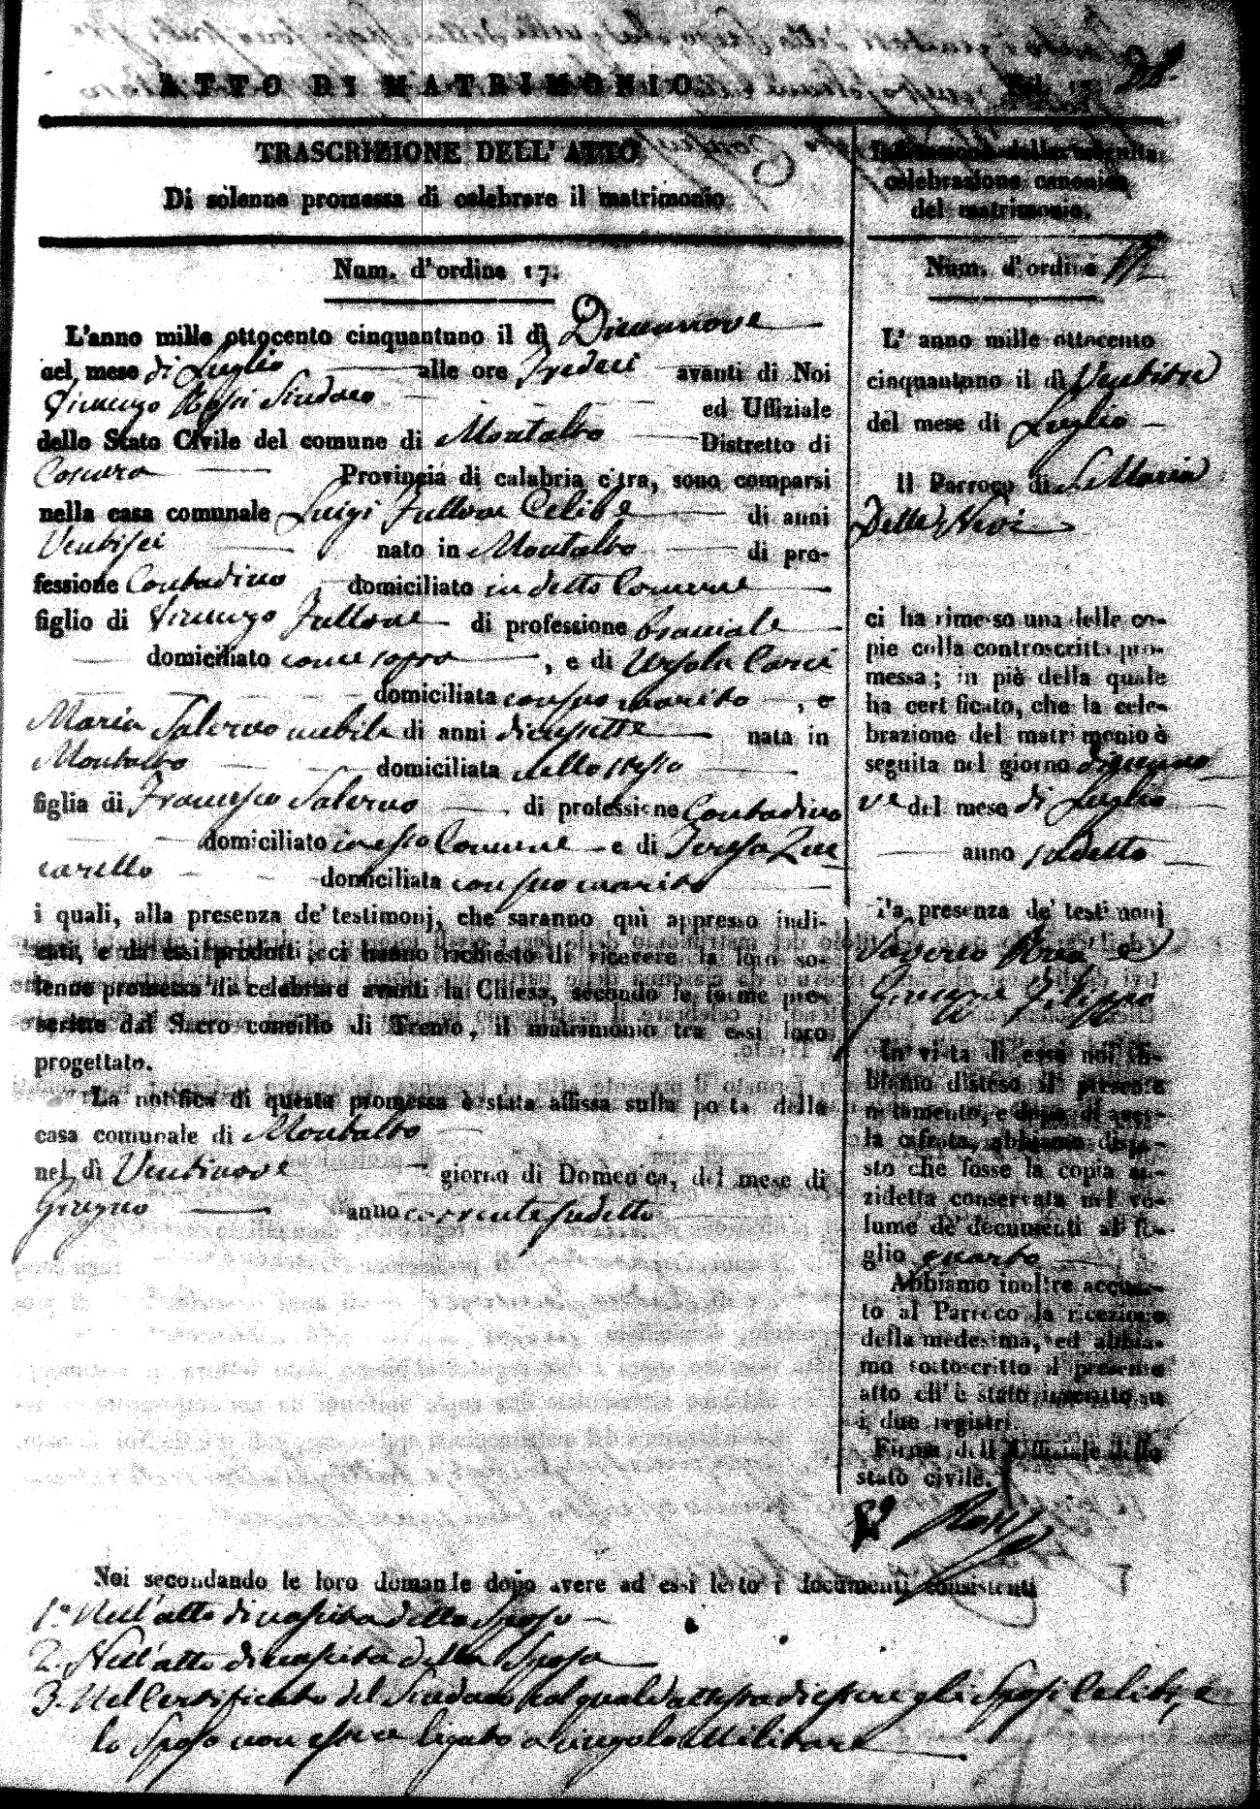 ATTO DI MATRIMONIO
TRASCRIZIONE DELL' ATTO
Di solenne promessa di celebrare il matrimonio
Num. d'ordine 17.
L'anno mille ottocento cinquantuno il dì Diecinnove
nel mese di Luglio alle ore Tredeci avanti di Noi
Vincenzo Rossi Sindaco ed Uffiziale
dello Stato Civile del comune di Montalto Distretto di
Cosenza Provincia di calabria citra, sono comparsi
nella casa comunale Luigi Fullone Celibe di anni
Ventisei nato in Montalto di pro-
fessione Contadino domiciliato in detto Comune
figlio di Vincenzo Fullone di professione bracciale
domiciliato come sopra, e di Ursola
domiciliata con suo marito, e
Maria Salerno nubile di anni diecissette nata in
Montalto domiciliata nello stesso
figlia di Francesco Salerno di professione Contadino
domiciliato in esso Comune e di Teresa Zuc
carello domiciliata con suo marito
i quali, alla presenza de' testimonj, che saranno quì appresso indi-
cati, e da essi prodotti, ci hanno richiesto di ricevere la loro so-
lenne promessa di celebrare avanti la Chiesa, secondo le forme pre-
scritte dal Sacro concilio di Trento, il matrimonio tra essi loro
progettato.
La notifica di questa promessa è stata affissa sulla porta della
casa comunale di Montalto
nel dì Ventinove giorno di Domenica, del mese di
Giugno anno corrente sudetto
Noi secondando le loro demande dopo avere ad essi letto i documenti consistenti
1.° Nell'atto di nascita dello Sposo
2. Nell'atto di nascita della Sposa
3. Nel Certificato del Sindaco col quale attesta di essere gli Sposi Celibi, e
lo Sposo non essere ligato a vincolo Militare
celebrazione canonica
del matrimonio.
Num. d'ordine 17
L' anno mille ottocento
cinquantuno il dì Ventitre
del mese di Luglio
Il Parroco di S. Maria
Della Nevi
ci ha rimesso una delle co-
pie colla controscritta pro-
messa; in piè della quale
ha certificato, che la cele-
brazione del matrimonio è
seguita nel giorno diecinno
ve del mese di Luglio
anno sudetto
a presenza de' testimonj
Saverio e
Filippo
In vista di essa noi ab-
biamo disteso il presente
notamento, e dopo di aver-
la cifrata, abbiamo dispo-
sto che fosse la copia an-
zidetta conservata nel vo-
lume de' documenti al fo-
glio quarto
Abbiamo inoltre accusa-
to al Parroco la ricezione
della medesima, ed abbia-
mo sottoscritto il presente
atto ch' è stato inserito su
i due registri.
Firma dell' Uffiziale dello
stato civile.
Rossi